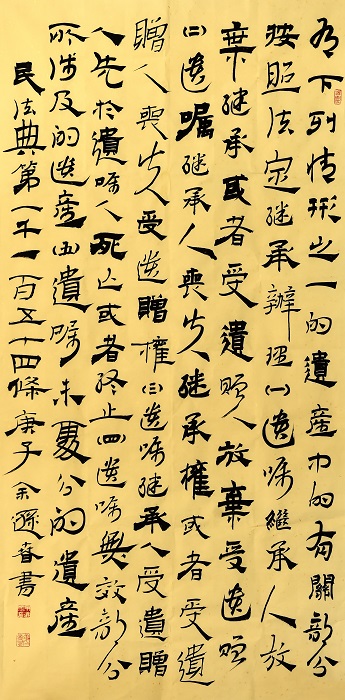 有下列情形之一的遺產中的有關部分
按照法定继承辦理(一)遗嘱繼承人放
棄继承或者受遺赠人放棄受遗赠
(二)遗囑继承人喪失继承權或者受遺
贈人喪失受遗贈權(三)遗嘱继承人受遺贈
人先於遺嘱人死亡或者终止(四)遗嘱無效部分
所涉及的遗產(五)遺嘱未處分的遺產
民法典第一千一百五十四條庚子余遜春書